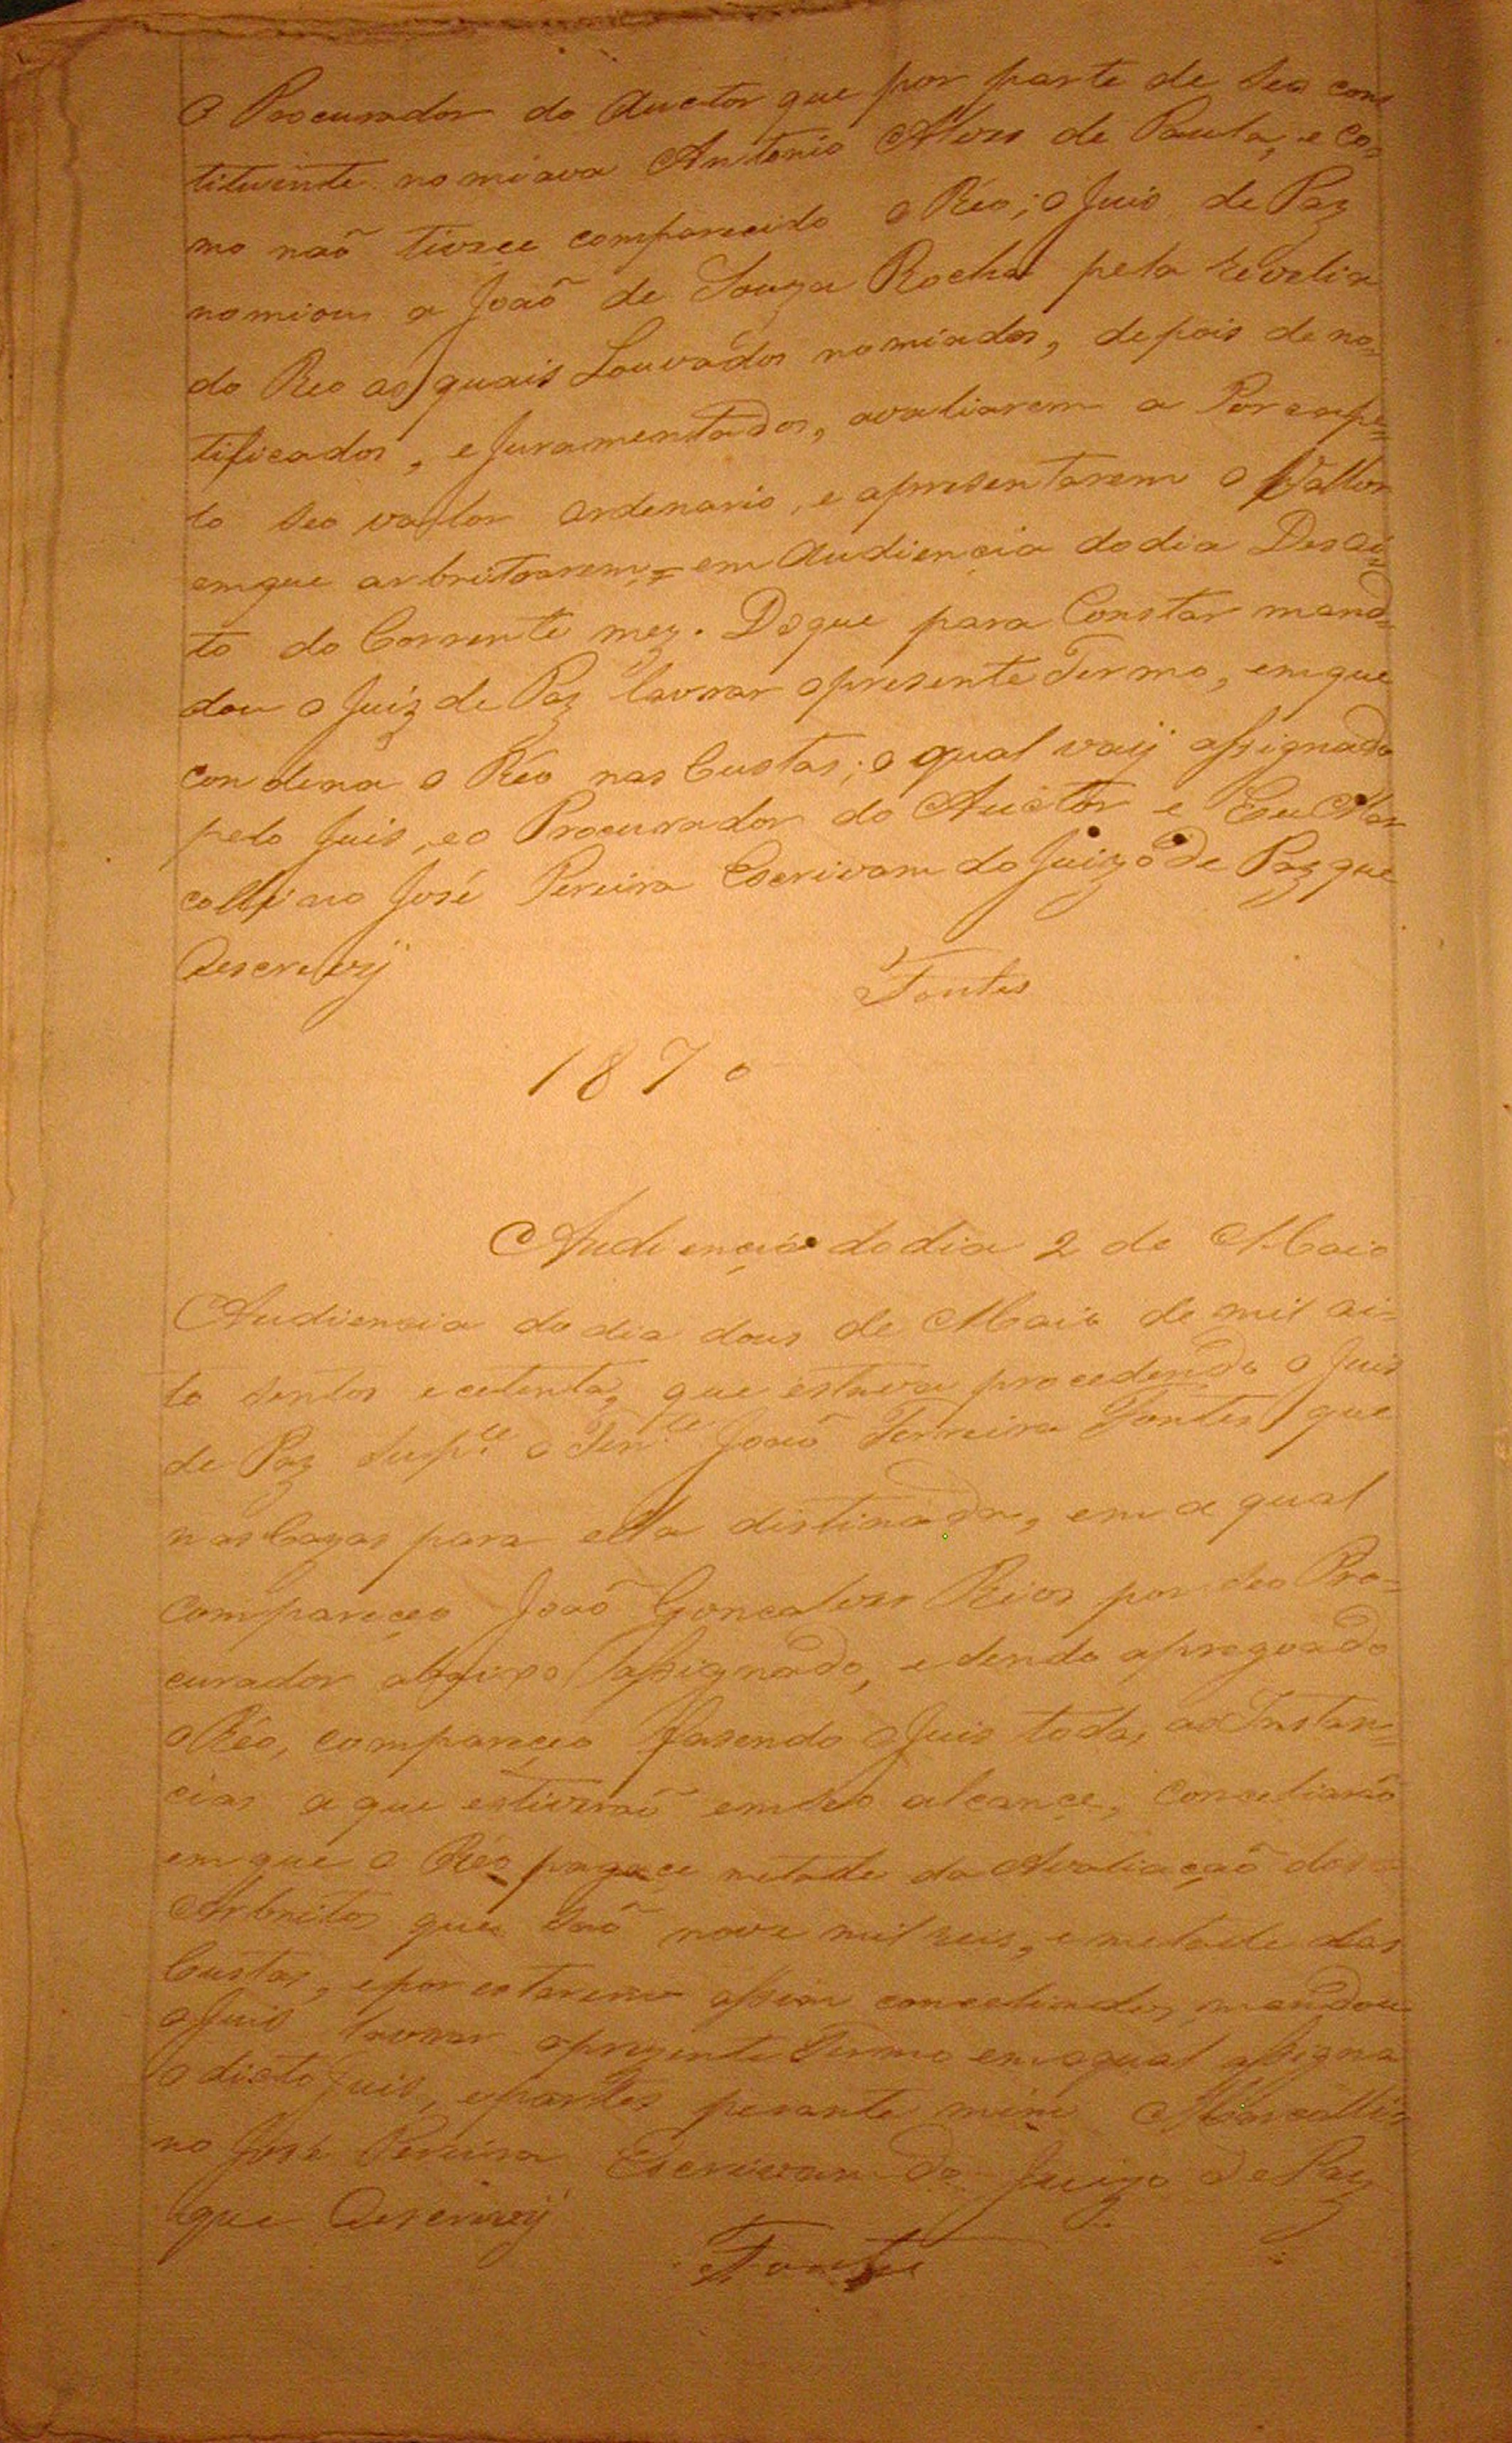 O Procurador do Auctor que por parte de seo cons
tituinte nomiava Antonio Alves de Paula, e co=
mo naõ tivece comparecido o Réo; o Juis de Paz
nomiou a Joaõ de Souza Rocha pela revelia
do Reo as quais Louvados nomiados, depois de no=
tificados, e Juramentados, avaliarem a Porca pe=
lo seo vallor ordenario, e apresentarem o Vallor
emque arbritrarem, em Audiencia dodia Desoi=
to do Corrente mez. Doque para Constar man=
dou o Juiz de Paz lavrar opresente Termo, emque
condena o Réo nas Custas; o qual vaij assignado
pelo Juis, eo Procurador do Auctor e Eeu Mar
collino José Pereira Escrivam do Juizo de Paz que
Oescrevij
Fontes
1870
Audiencia dodia 2 de Maio
Audiencia do dia dous de Maio de mil oi=
to sentos e cetenta, que estava procedendo o Juis
de Paz Sup.te o Ten.te Joaõ Ferreira Fontes que
nas Cazas para ella distinada, em a qual
compareceo Joaõ Goncalves Rios por seo Pro=
curador abaixo assignado, e sendo apregoado
o Réo, compareceo fasendo o Juis todas as Instan=
cias a que estiveraõ em seo alcance, conceliaraõ
em que o Réo pagace metade da Avaliaçaõ dos
Arbritos que saõ nove mil reis, e metade das
Custas, epor estarem assim conceliados, mandou
o Juis lavrar opresente Termo em oqual assigna
o dicto Juis, epartes perante mim Marcolli=
no José Pereira Escrivam do Juizo de Paz
que Oescrevij
Fontes